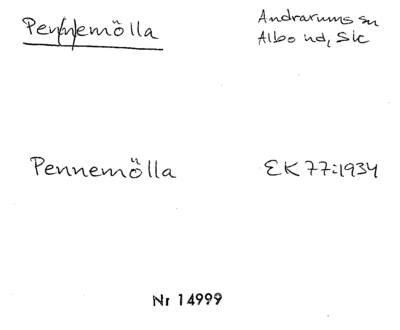 Pen/n/emölla
Andrarums sn
Albo hd, Sk
Pennemölla
EK 77:1934
Nr 14999